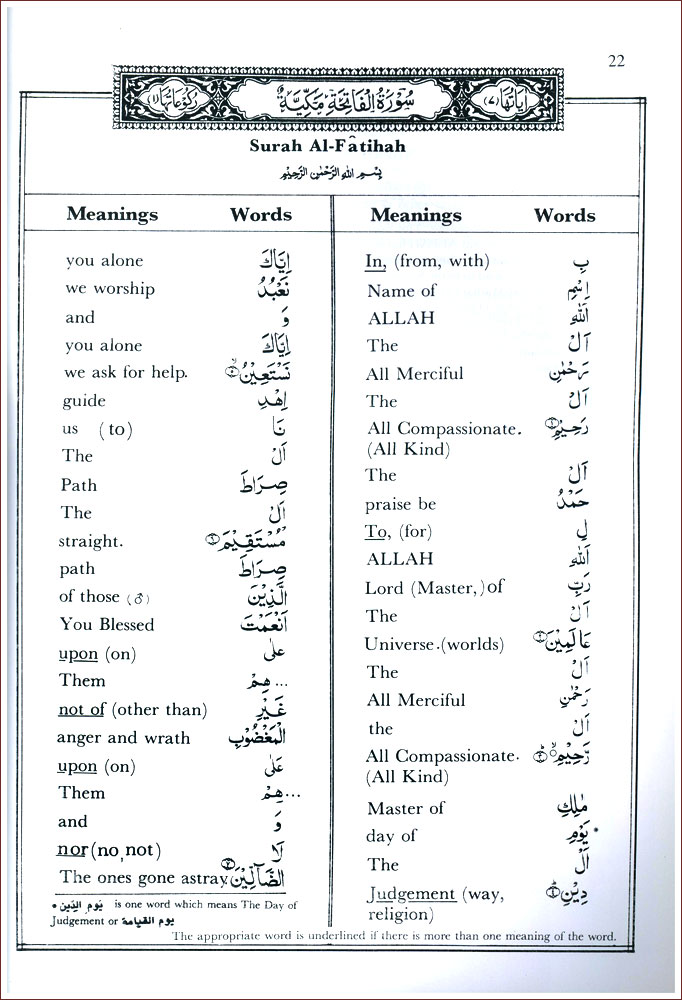 22
اٰيَاتُهَا (٧) سُوْرَةُ الْفَاتِحَةِ مَكِّيَّةٌ رُكُوْعَاتُهَا (١)
Surah Al-Fâtihah
بِسْمِ اللهِ الرَّحْمٰنِ الرَّحِيْمِ
Meanings Words
In, (from, with) بِ
Name of اِسْمِ
ALLAH اَللهِ
The اَلْ
All Merciful رَحْمٰنِ
The اَلْ
All Compassionate. رَحِيْمِ ١
(All Kind)
The اَلْ
praise be حَمْدُ
To, (for) لِ
ALLAH اَللهِ
Lord (Master,) of رَبِّ
The اَلْ
Universe. (worlds) عَالَمِيْنَ ٢
The اَلْ
All Merciful رَحْمٰنِ
the اَلْ
All Compassionate. رَّحِيْمِ ٣
(All Kind)
Master of مٰلِكِ
day of يَوْمِ *
The اَلْ
Judgement (way, دِيْنِ ٤
religion)
Meanings Words
you alone اِيَّاكَ
we worship نَعْبُدُ
and وَ
you alone اِيَّاكَ
we ask for help. نَسْتَعِيْنُ ٥
guide اِهْدِ
us (to) نَا
The اَلْ
Path صِرَاطَ
The اَلْ
straight. مُسْتَقِيْمَ ٦
path صِرَاطَ
of those (♂) الَّذِيْنَ
You Blessed اَنْعَمْتَ
upon (on) عَلٰى
Them هِمْ ...
not of (other than) غَيْرِ
anger and wrath الْمَغْضُوْبِ
upon (on) عَلٰى
Them هِمْ ...
and وَ
nor (no, not) لَا
The ones gone astray. الضَّآلِّيْنَ ٧
* يوم الدّين is one word which means The Day of
Judgement or يوم القيامة
The appropriate word is underlined if there is more than one meaning of the word.